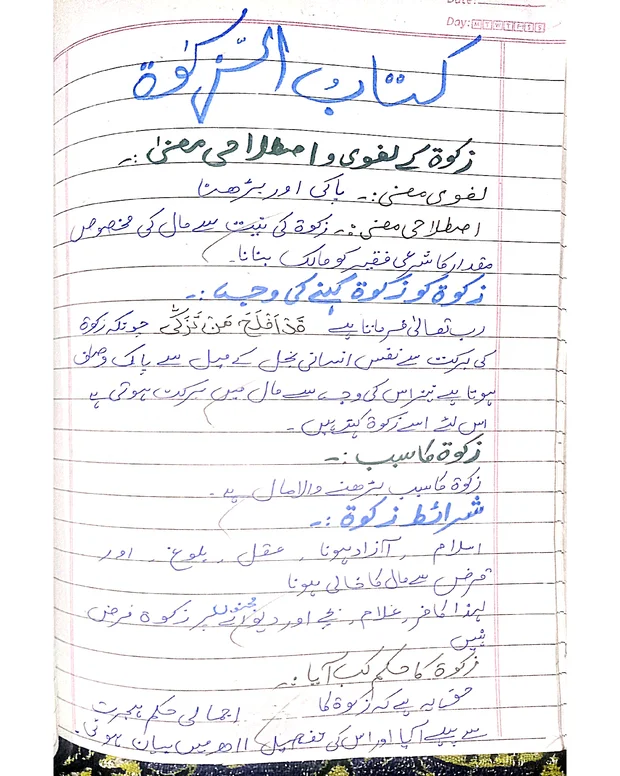 Date:
Day: M T W T F S S
کتاب الزکوٰۃ
زکوۃ کے لغوی و اصطلاحی معنیٰ:۔
لغوی معنی:۔ پاکی اور بڑھنا
اصطلاحی معنی:۔ زکوۃ کی نیت سے مال کی مخصوص
مقدار کا شرعی فقیر کو مالک بنانا۔
زکوۃ کو زکوۃ کہنے کی وجہ:۔
رب تعالیٰ فرماتا ہے قَدْ اَفْلَحَ مَنْ تَزَكّٰى چونکہ زکوۃ
کی برکت سے نفس انسانی بخل کے میل سے پاک وصاف
ہوتا ہے نیز اس کی وجہ سے مال میں برکت ہوتی ہے
اس لئے اسے زکوۃ کہتے ہیں۔
زکوۃ کا سبب:۔
زکوۃ کا سبب بڑھنے والا مال ہے۔
شرائط زکوۃ:۔
اسلام ، آزاد ہونا ، عقل ، بلوغ ، اور
قرض سے مال کا خالی ہونا
لہذا کافر، غلام، بچے اور دیوانے مجنوں پر زکوۃ فرض
نہیں
زکوۃ کا حکم کب آیا:۔
حق یہ ہے کہ زکوۃ کا اجمالی حکم ہجرت
سے پہلے آیا اور اس کی تفصیل ۲ھ میں بیان ہوئی۔